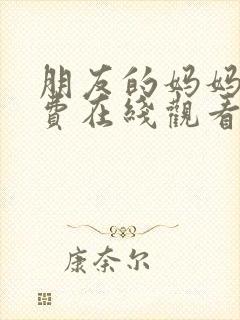 朋友的妈妈
费在綫觀看
康奈尔